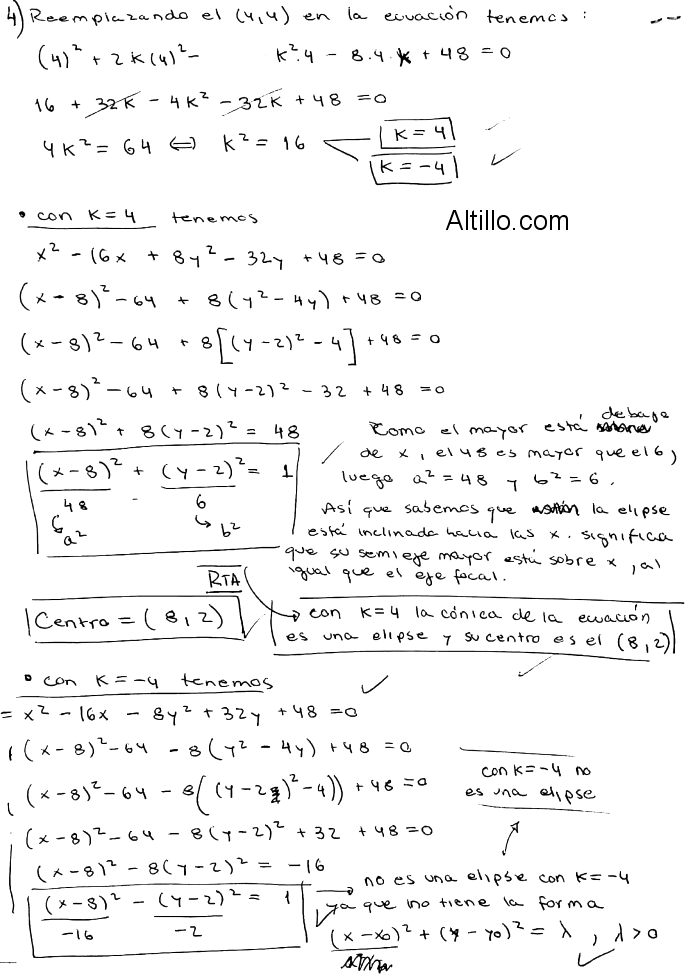 4) Reemplazando el (4,4) en la ecuación tenemos :
(4)² + 2K(4)² - K².4 - 8.4.K + 48 = 0
16 + 32K - 4K² - 32K + 48 = 0
4K² = 64 ⇔ K² = 16
K = 4
K = -4
• con K=4 tenemos
Altillo.com
x² - 16x + 8y² - 32y + 48 = 0
(x - 8)² - 64 + 8(y² - 4y) + 48 = 0
(x - 8)² - 64 + 8[(y-2)² - 4] + 48 = 0
(x-8)² - 64 + 8(y-2)² - 32 + 48 = 0
(x-8)² + 8(y-2)² = 48
(x-8)² + (y-2)² = 1
48 6
a² b²
Como el mayor está debajo
de x, el 48 es mayor que el 6,
luego a² = 48 y b² = 6.
Así que sabemos que la elipse
está inclinada hacia las x. significa
que su semieje mayor está sobre x, al
igual que el eje focal.
RTA
Centro = (8,2)
con K=4 la cónica de la ecuación
es una elipse y su centro es el (8,2)
• con K=-4 tenemos
= x² - 16x - 8y² + 32y + 48 = 0
(x-8)² - 64 - 8(y² - 4y) + 48 = 0
(x-8)² - 64 - 8((y-2)² - 4)) + 48 = 0
(x-8)² - 64 - 8(y-2)² + 32 + 48 = 0
(x-8)² - 8(y-2)² = -16
(x-8)² - (y-2)² = 1
-16 -2
con K=-4 no
es una elipse
no es una elipse con K=-4
ya que no tiene la forma
(x-x0)² + (y-y0)² = λ , λ > 0